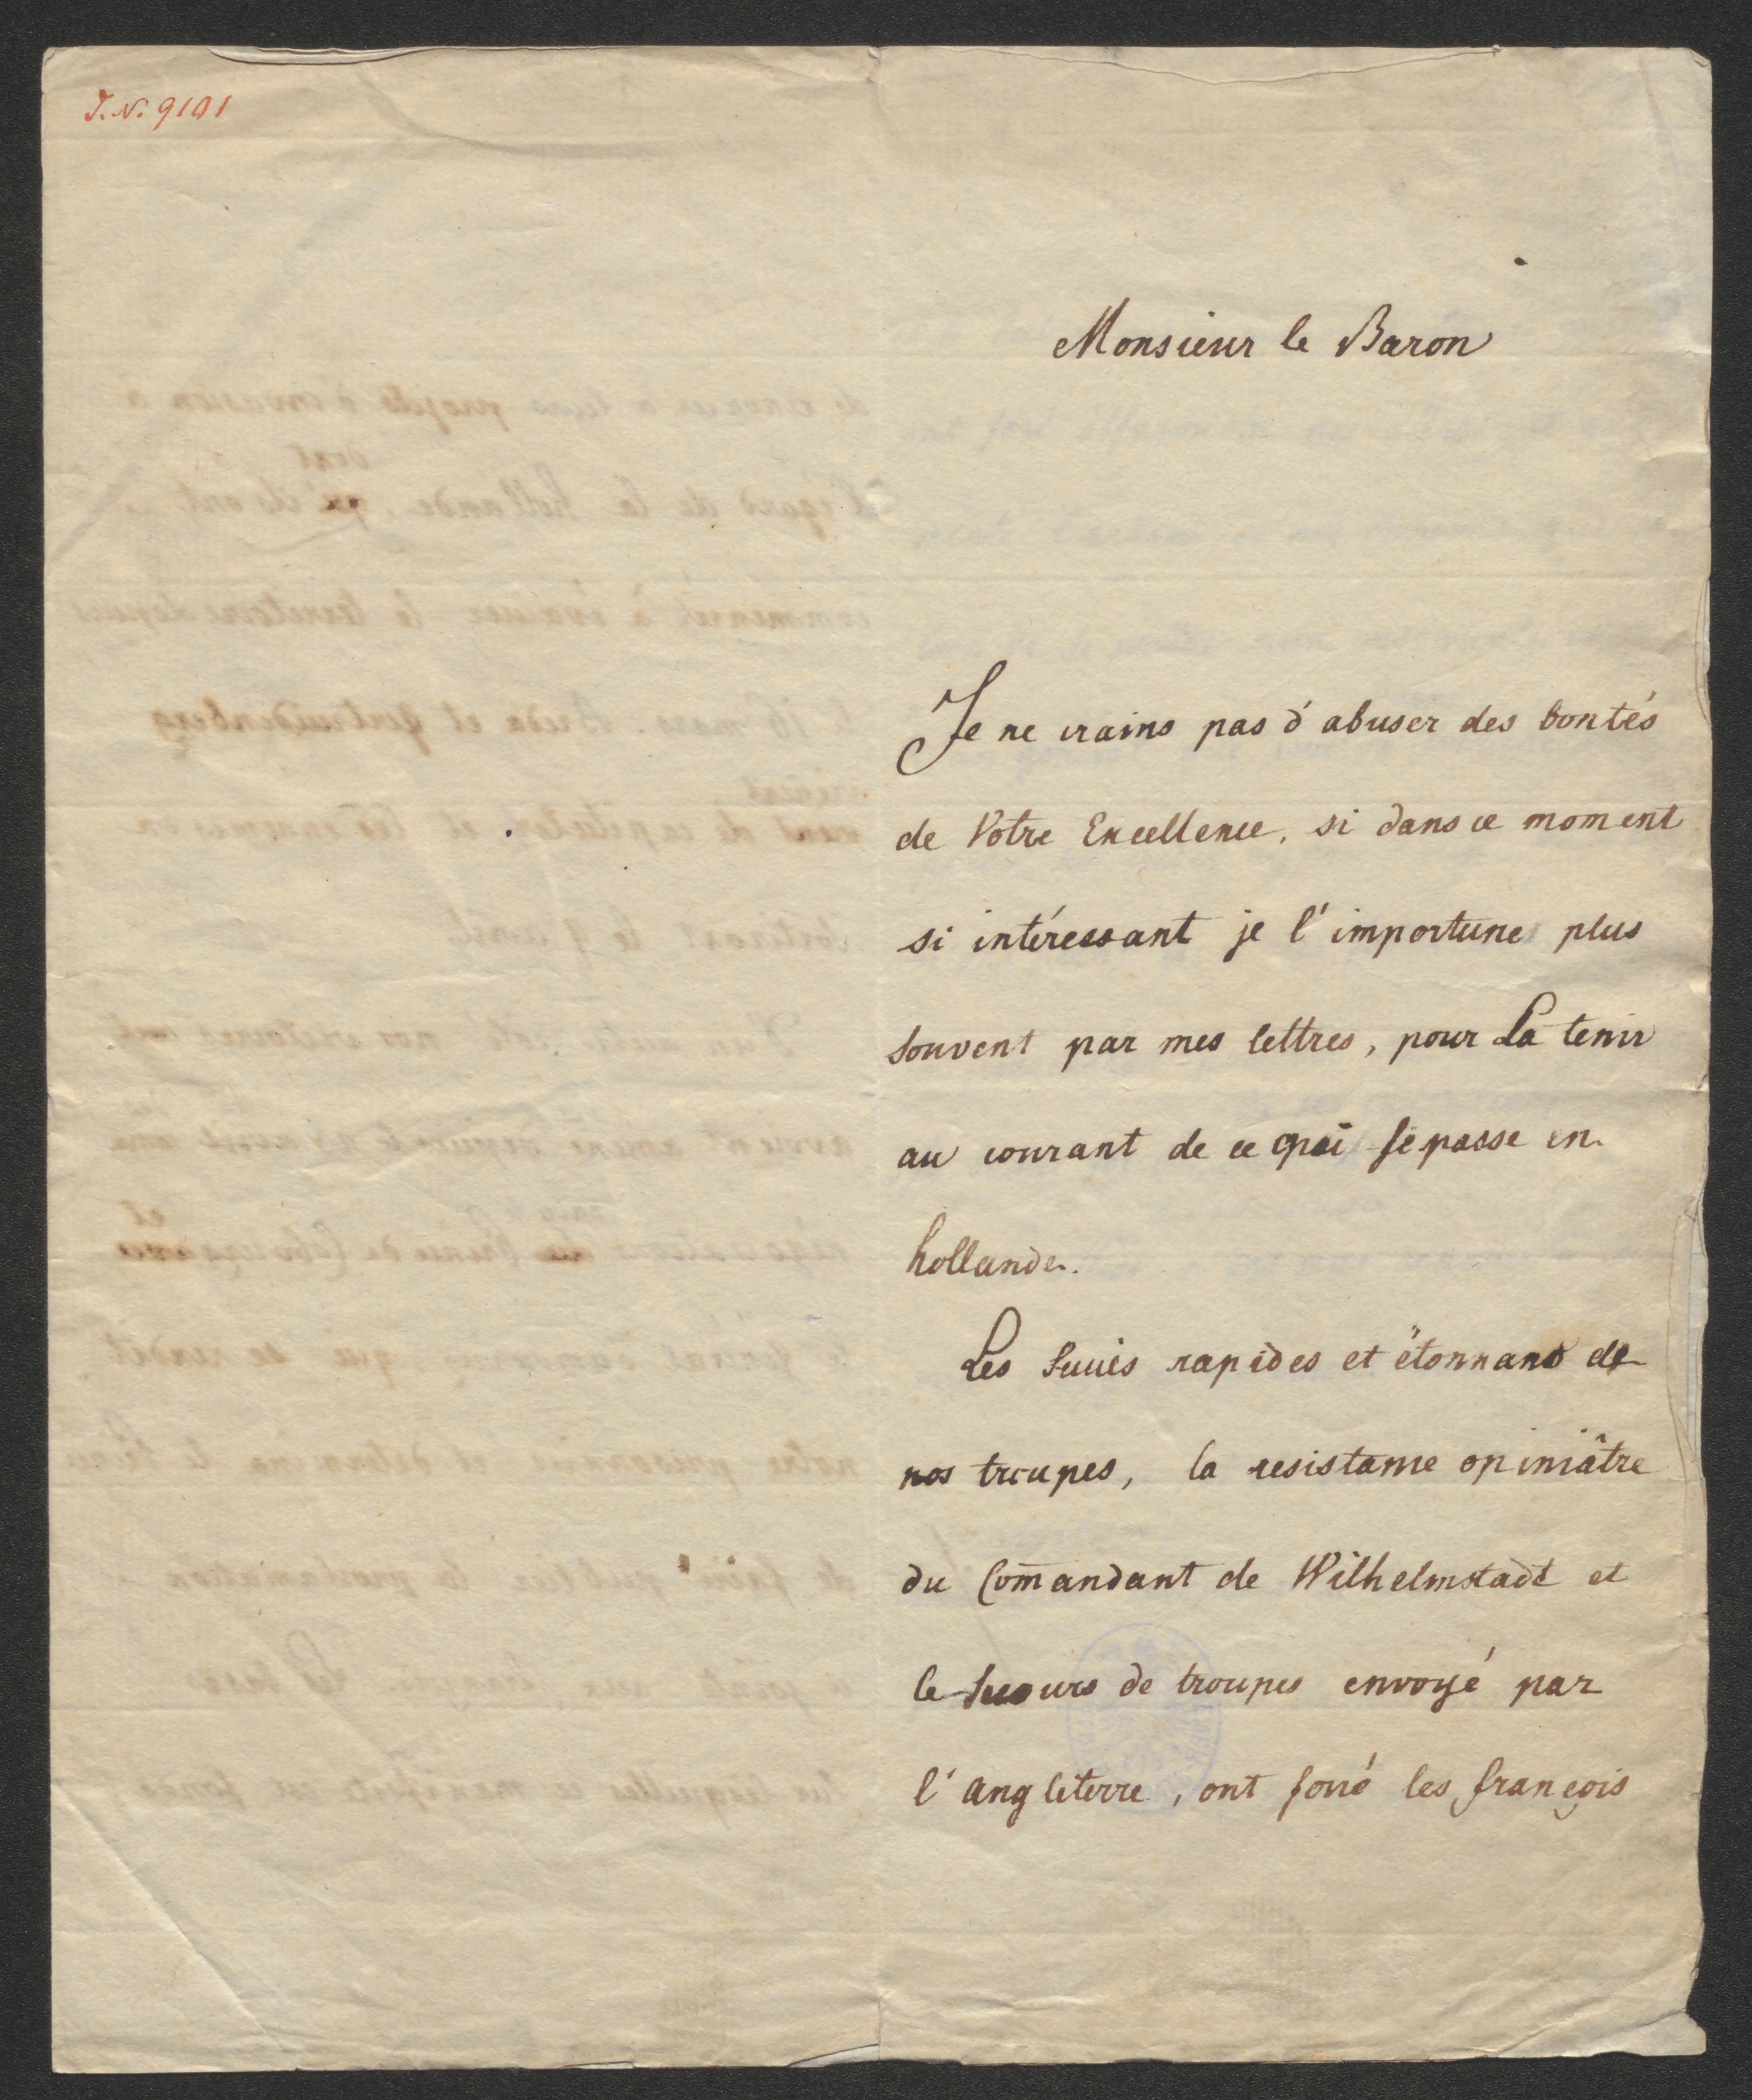 J. N. 9101
Monsieur le Baron
Je ne crains pas d'abuser des bontés
de Votre Excellence, si dans ce moment
si intéressant je l'importune plus
souvent par mes lettres, pour La tenir
au courant de ce qui se passe en
hollande.
Les succès rapides et étonnans de
nos troupes, la resistance opiniâtre
du Com̄andant de Wilhelmstadt et
le secours de troupes envoyé par
l'Angleterre, ont forcé les françois